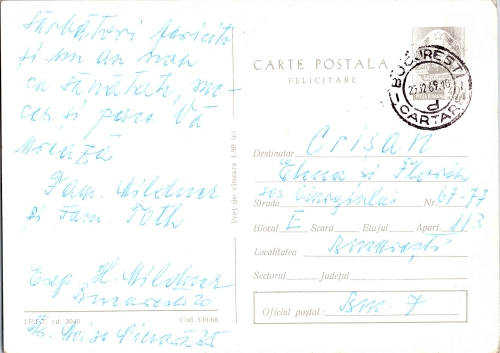 Sărbători fericite
și un an nou
cu sănătate, suc-
ces și pace Vă
urează
Fam. Mildner
și Fam. Toth
Exp. H. Mildner
Bucuresti 20
I.P.B.T. cd. 3048
Cod. 510/68
Preț de vînzare 1,90 lei
CARTE POSTALA
FELICITARE
BUCUREȘTI
CARTARE
d
Destinatar Crișan
Elena și Florin
Strada sos Giurgiului Nr. 67-77
Blocul E Scara Etajul Apart. 113
Localitatea București
Sectorul Județul
Oficiul poștal: Buc. 7